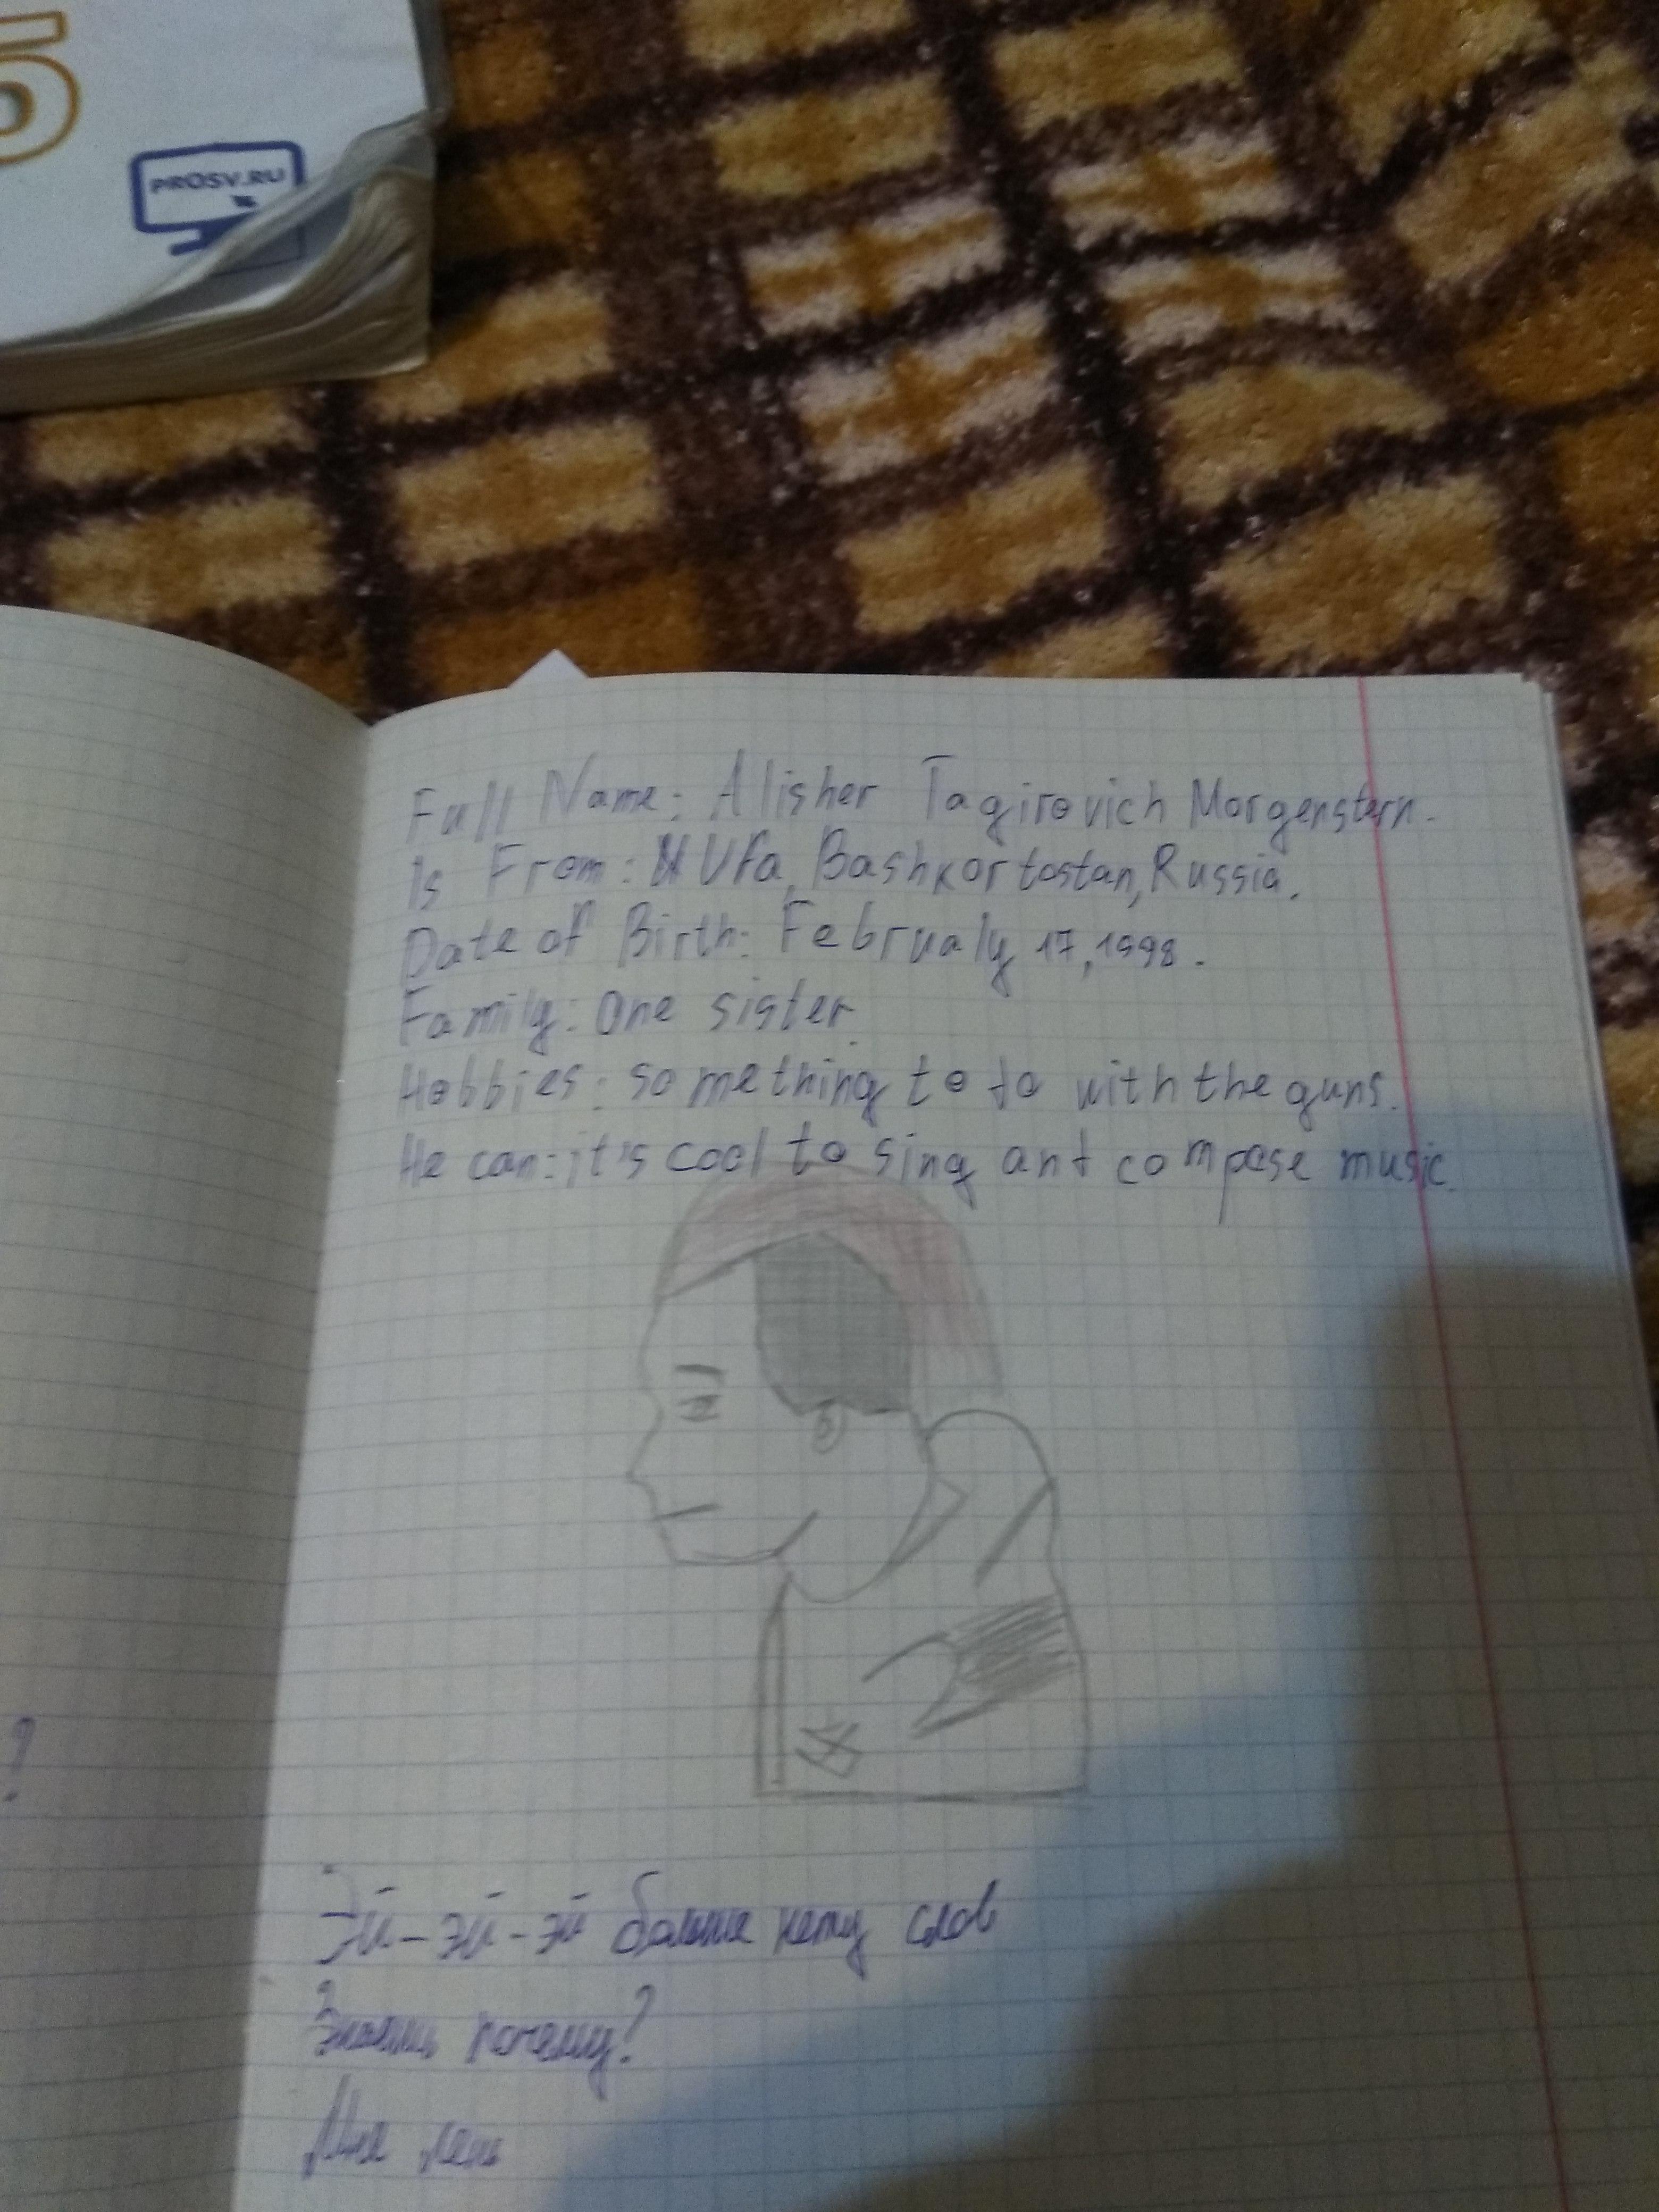 5
PROSV.RU
Full Name: Alisher Tagirovich Morgenstern.
Is From: Ufa, Bashkortostan, Russia.
Date of Birth: Februaly 17, 1998.
Family: One sister.
Hobbies: something to to with the guns.
He can: it's cool to sing ant compose music.
?
Эй-эй-эй больше нету слов
Знаешь почему?
Мне лень